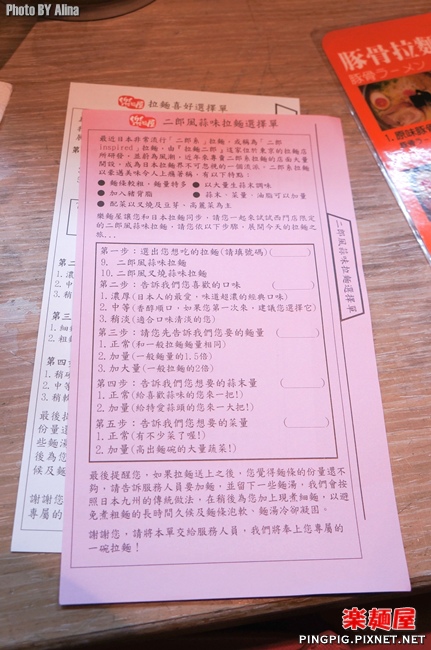 Photo BY Alina
豚骨拉麵
豚骨ラーメン
1.原味豚骨
樂麵屋 拉麵喜好選擇單
樂麵屋 二郎風蒜味拉麵選擇單
最近日本非常流行「二郎系」拉麵，或稱為「二郎
inspired」拉麵。由「拉麵二郎」這家位於東京的拉麵店
所研發，並蔚為風潮，近年來專賣二郎系拉麵的店面大量
開設，成為日本拉麵界不可忽視的一個流派。二郎系拉麵
以豪邁美味令人上癮著稱，有以下特點：
● 麵條較粗，麵量特多 ● 以大量生蒜末調味
● 加入豬背脂 ● 蒜末、菜量、油脂可以加量
● 配菜以又燒及豆芽、高麗菜為主
樂麵屋讓您和日本拉麵同步，請您一起來試試西門店限定
的二郎風蒜味拉麵，請您依以下步驟，展開今天的拉麵之
旅...
第一步：選出您想吃的拉麵(請填號碼)
9. 二郎風蒜味拉麵
10. 二郎風叉燒蒜味拉麵
第二步：告訴我們您喜歡的口味
1. 濃厚(日本人的最愛，味道超濃的經典口味)
2. 中等(香醇順口，如果您第一次來，建議您選擇它)
3. 稍淡(適合口味清淡的您)
第三步：請您先告訴我們您要的麵量
1. 正常(和一般拉麵麵量相同)
2. 加量(一般麵量的1.5倍)
3. 加大量(一般拉麵的2倍)
第四步：告訴我們您想要的蒜末量
1. 正常(給喜歡蒜味的您來一把!)
2. 加量(給特愛蒜頭的您來一大把!)
第五步：告訴我們您想要的菜量
1. 正常(有不少菜了喔!)
2. 加量(高出麵碗的大量蔬菜!)
最後提醒您，如果拉麵送上之後，您覺得麵條的份量還不
夠，請告訴服務人員要加麵，並留下一些麵湯，我們會按
照日本九州的傳統做法，在稍後為您加上現煮細麵，以避
免煮粗麵的長時間久候及麵條泡軟、麵湯冷卻凝固。
謝謝您，請將本單交給服務人員，我們將奉上您專屬的
一碗拉麵！
二郎風蒜味拉麵選擇單
樂麵屋
PINGPIG.PIXNET.NET